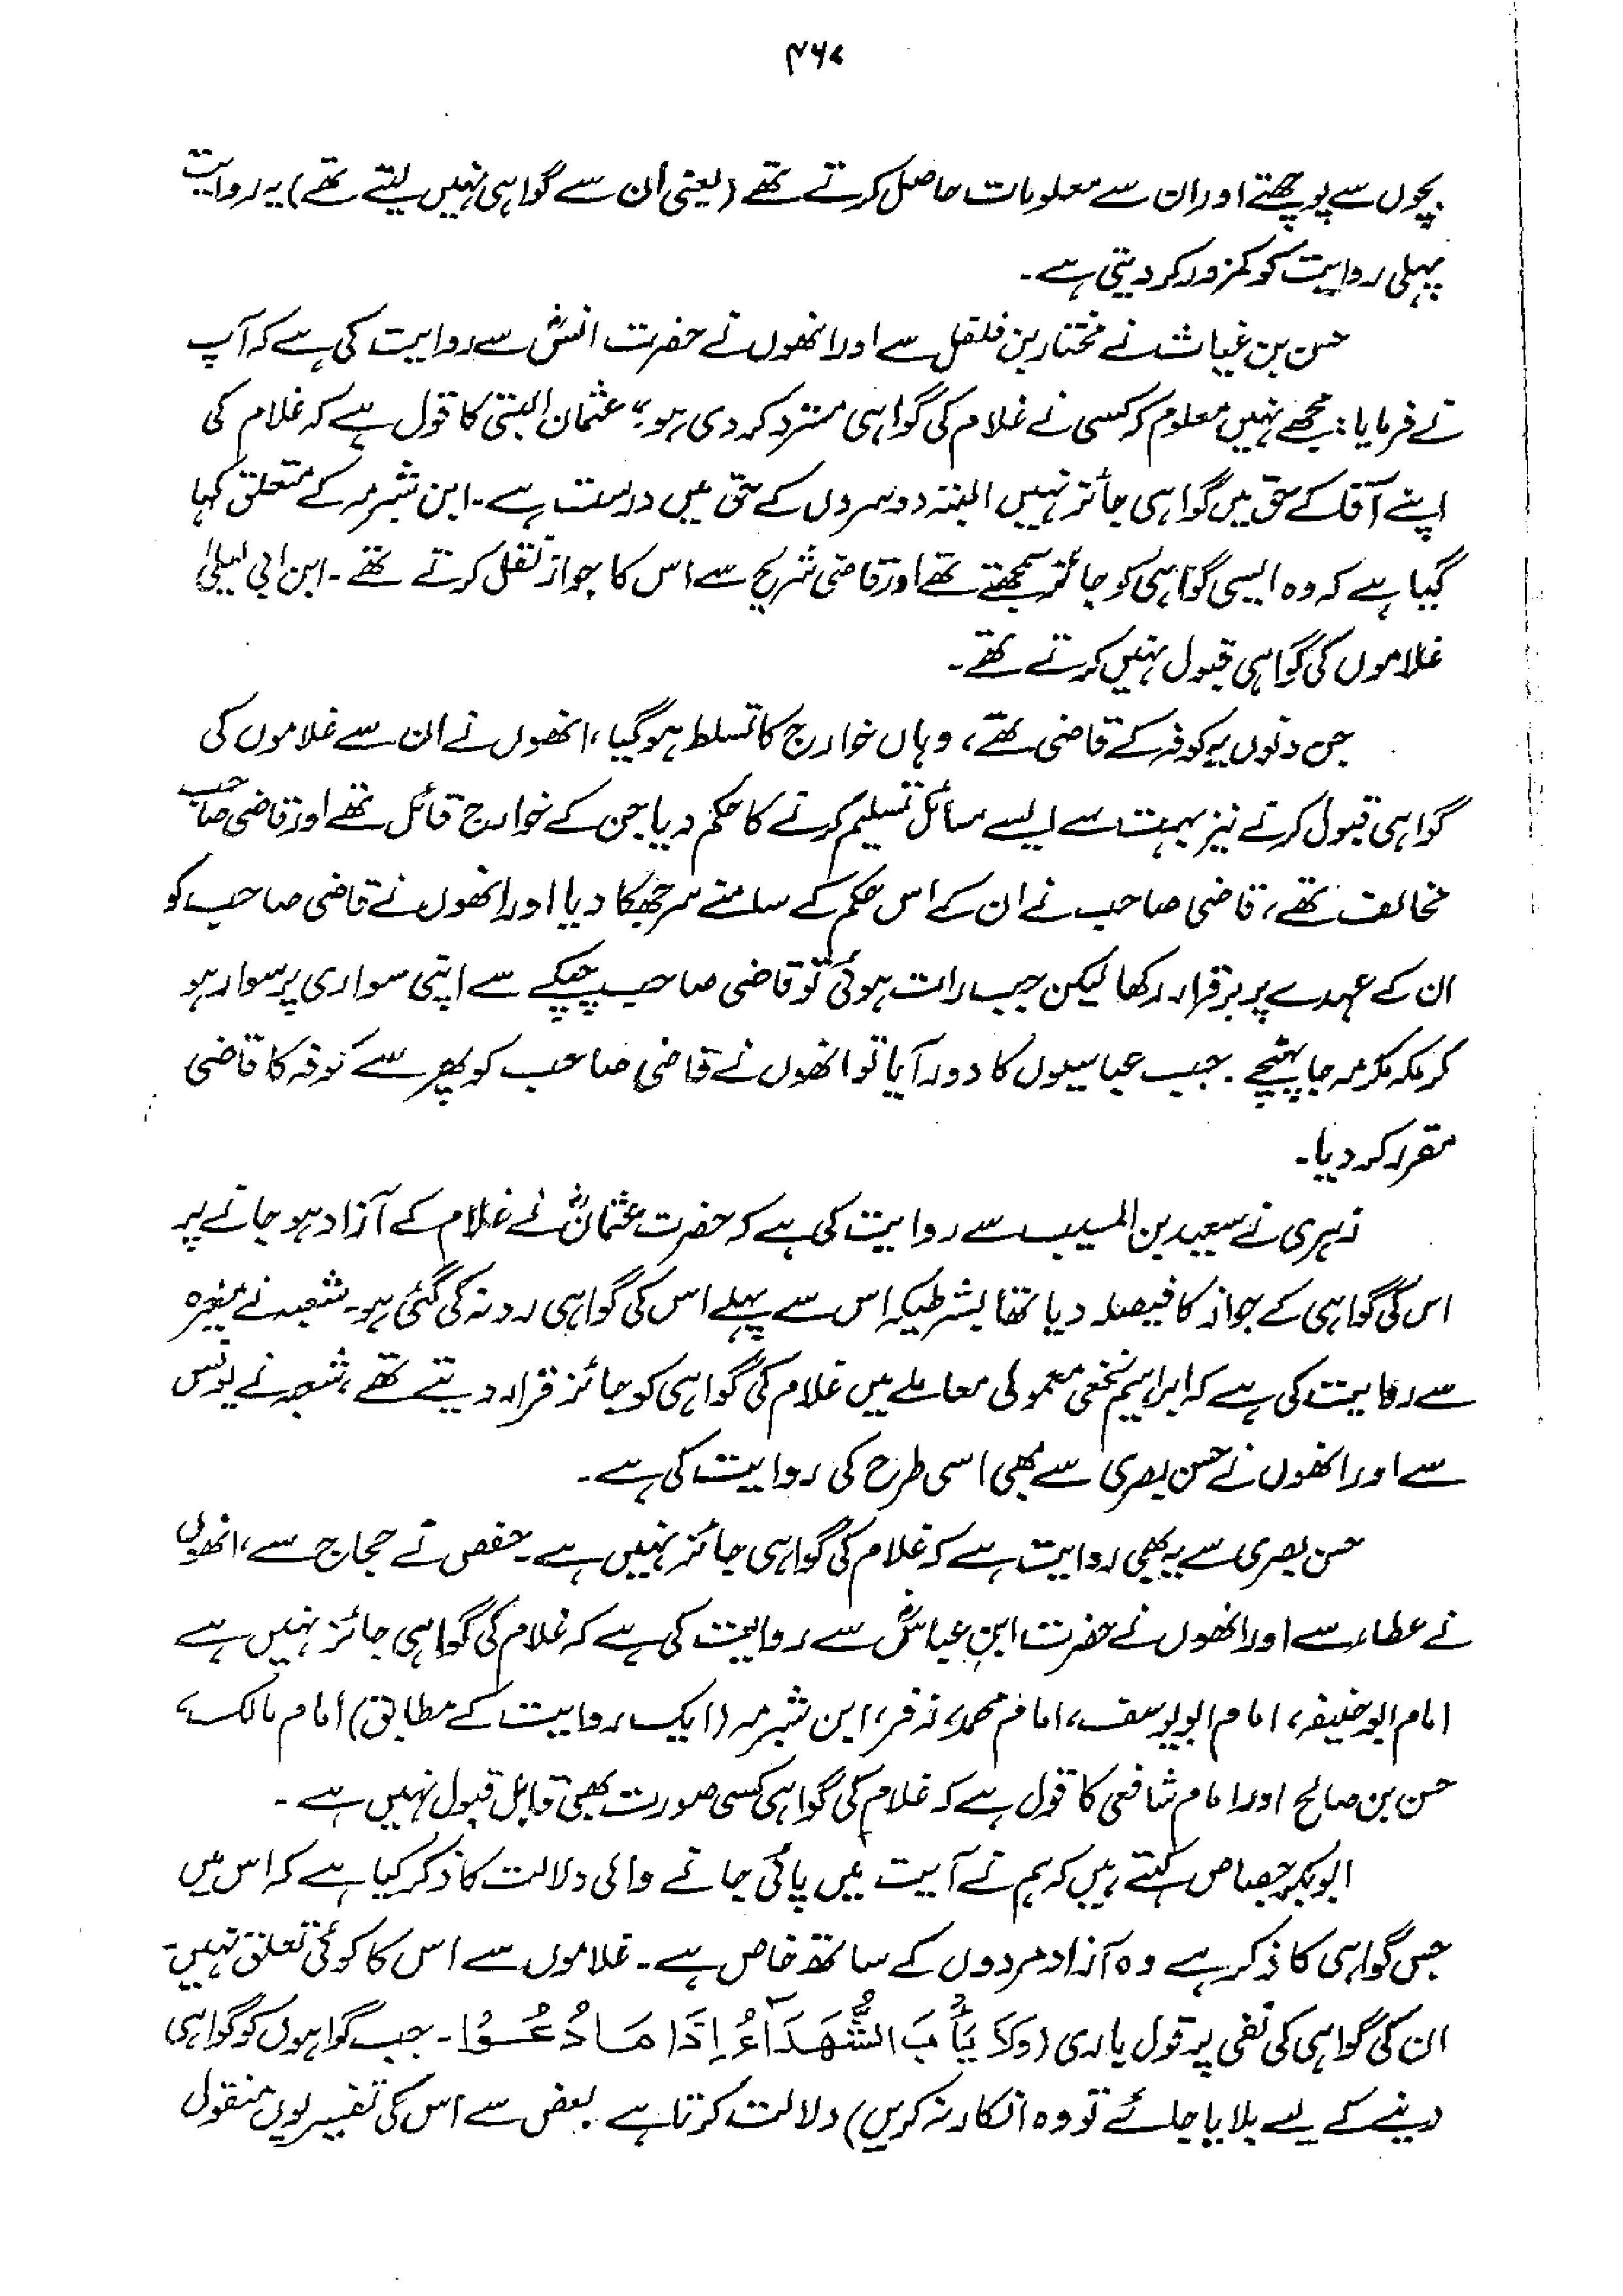 ۴۶۷
بچوں سے پوچھتے اور ان سے معلومات حاصل کرتے تھے (یعنی ان سے گواہی نہیں لیتے تھے) یہ روایت
پہلی روایت کو کمزور کر دیتی ہے۔
حسن بن غیاث نے مختار بن فلفل سے اور انھوں نے حضرت انسؓ سے روایت کی ہے کہ آپ
نے فرمایا: مجھے نہیں معلوم کہ کسی نے غلام کی گواہی مسترد کر دی ہو" عثمان البتی کا قول ہے کہ غلام کی
اپنے آقا کے حق میں گواہی جائز نہیں البتہ دوسروں کے حق میں درست ہے۔ ابن شبرمہ کے متعلق کہا
گیا ہے کہ وہ ایسی گواہی کو جائز سمجھتے تھے اور قاضی شریح سے اس کا جواز نقل کرتے تھے۔ ابن ابی لیلیٰ
غلاموں کی گواہی قبول نہیں کرتے تھے۔
جن دنوں یہ کوفہ کے قاضی تھے، وہاں خوارج کا تسلط ہو گیا، انھوں نے ان سے غلاموں کی
گواہی قبول کرنے نیز بہت سے ایسے مسائل تسلیم کرنے کا حکم دیا جن کے خوارج قائل تھے اور قاضی صاحب
مخالف تھے، قاضی صاحب نے ان کے اس حکم کے سامنے سر جھکا دیا اور انھوں نے قاضی صاحب کو
ان کے عہدے پر برقرار رکھا لیکن جب رات ہوئی تو قاضی صاحب چپکے سے اپنی سواری پر سوار ہو
کر مکہ مکرمہ جا پہنچے۔ جب عباسیوں کا دور آیا تو انھوں نے قاضی صاحب کو پھر سے کوفہ کا قاضی
مقرر کر دیا۔
زہری نے سعید بن المسیب سے روایت کی ہے کہ حضرت عثمانؓ نے غلام کے آزاد ہو جانے پر
اس کی گواہی کے جواز کا فیصلہ دیا تھا بشرطیکہ اس سے پہلے اس کی گواہی رد نہ کی گئی ہو۔ شعبہ نے مغیرہ
سے روایت کی ہے کہ ابراہیم نخعی معمولی معاملے میں غلام کی گواہی کو جائز قرار دیتے تھے، شعبہ نے یونس
سے اور انھوں نے حسن بصری سے بھی اسی طرح کی روایت کی ہے۔
حسن بصری سے یہ بھی روایت ہے کہ غلام کی گواہی جائز نہیں ہے۔ حفص نے حجاج سے، انھوں
نے عطاء سے اور انھوں نے حضرت ابن عباسؓ سے روایت کی ہے کہ غلام کی گواہی جائز نہیں ہے
امام ابو حنیفہ، امام ابو یوسف، امام محمد، زفر، ابن شبرمہ (ایک روایت کے مطابق) امام مالک،
حسن بن صالح اور امام شافعی کا قول ہے کہ غلام کی گواہی کسی صورت بھی قابل قبول نہیں ہے۔
ابوبکر جصاص کہتے ہیں کہ ہم نے آیت میں پائی جانے والی دلالت کا ذکر کیا ہے کہ اس میں
جس گواہی کا ذکر ہے وہ آزاد مردوں کے ساتھ خاص ہے۔ غلاموں سے اس کا کوئی تعلق نہیں۔
ان کی گواہی کی نفی پر قول باری (وَلَا يَأْبَ الشُّهَدَآءُ إِذَا مَا دُعُوْا۔ جب گواہوں کو گواہی
دینے کے لیے بلایا جائے تو وہ انکار نہ کریں) دلالت کرتا ہے۔ بعض سے اس کی تفسیر یوں منقول